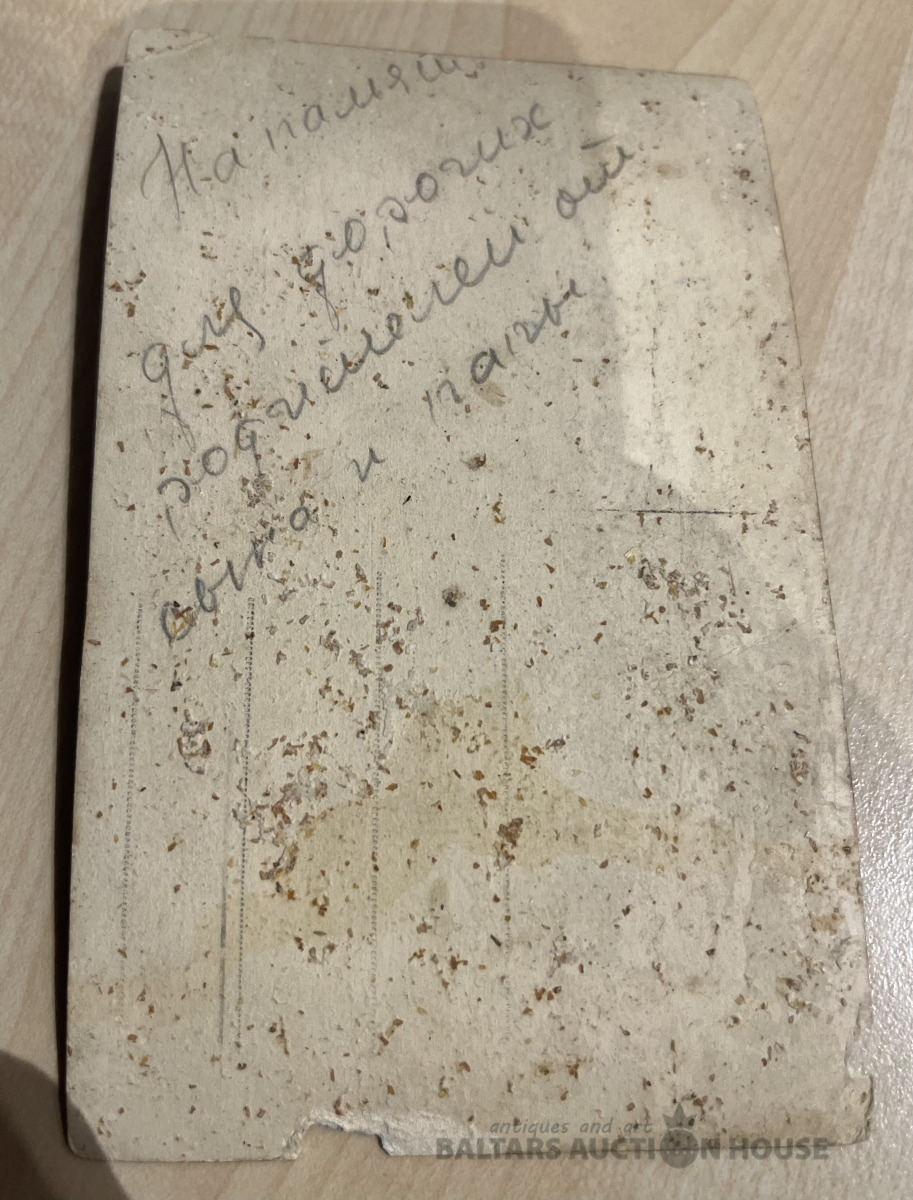 На память
для дорогих
родителей от
сына и папы
antiques and art
BALTARS AUCTION HOUSE